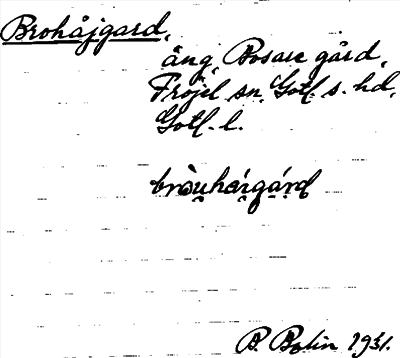 Brohåjgard,
äng, Bosare gård,
Fröjel sn, Gotl. s. hd,
Gotl. l.
B. Bolin 1931.